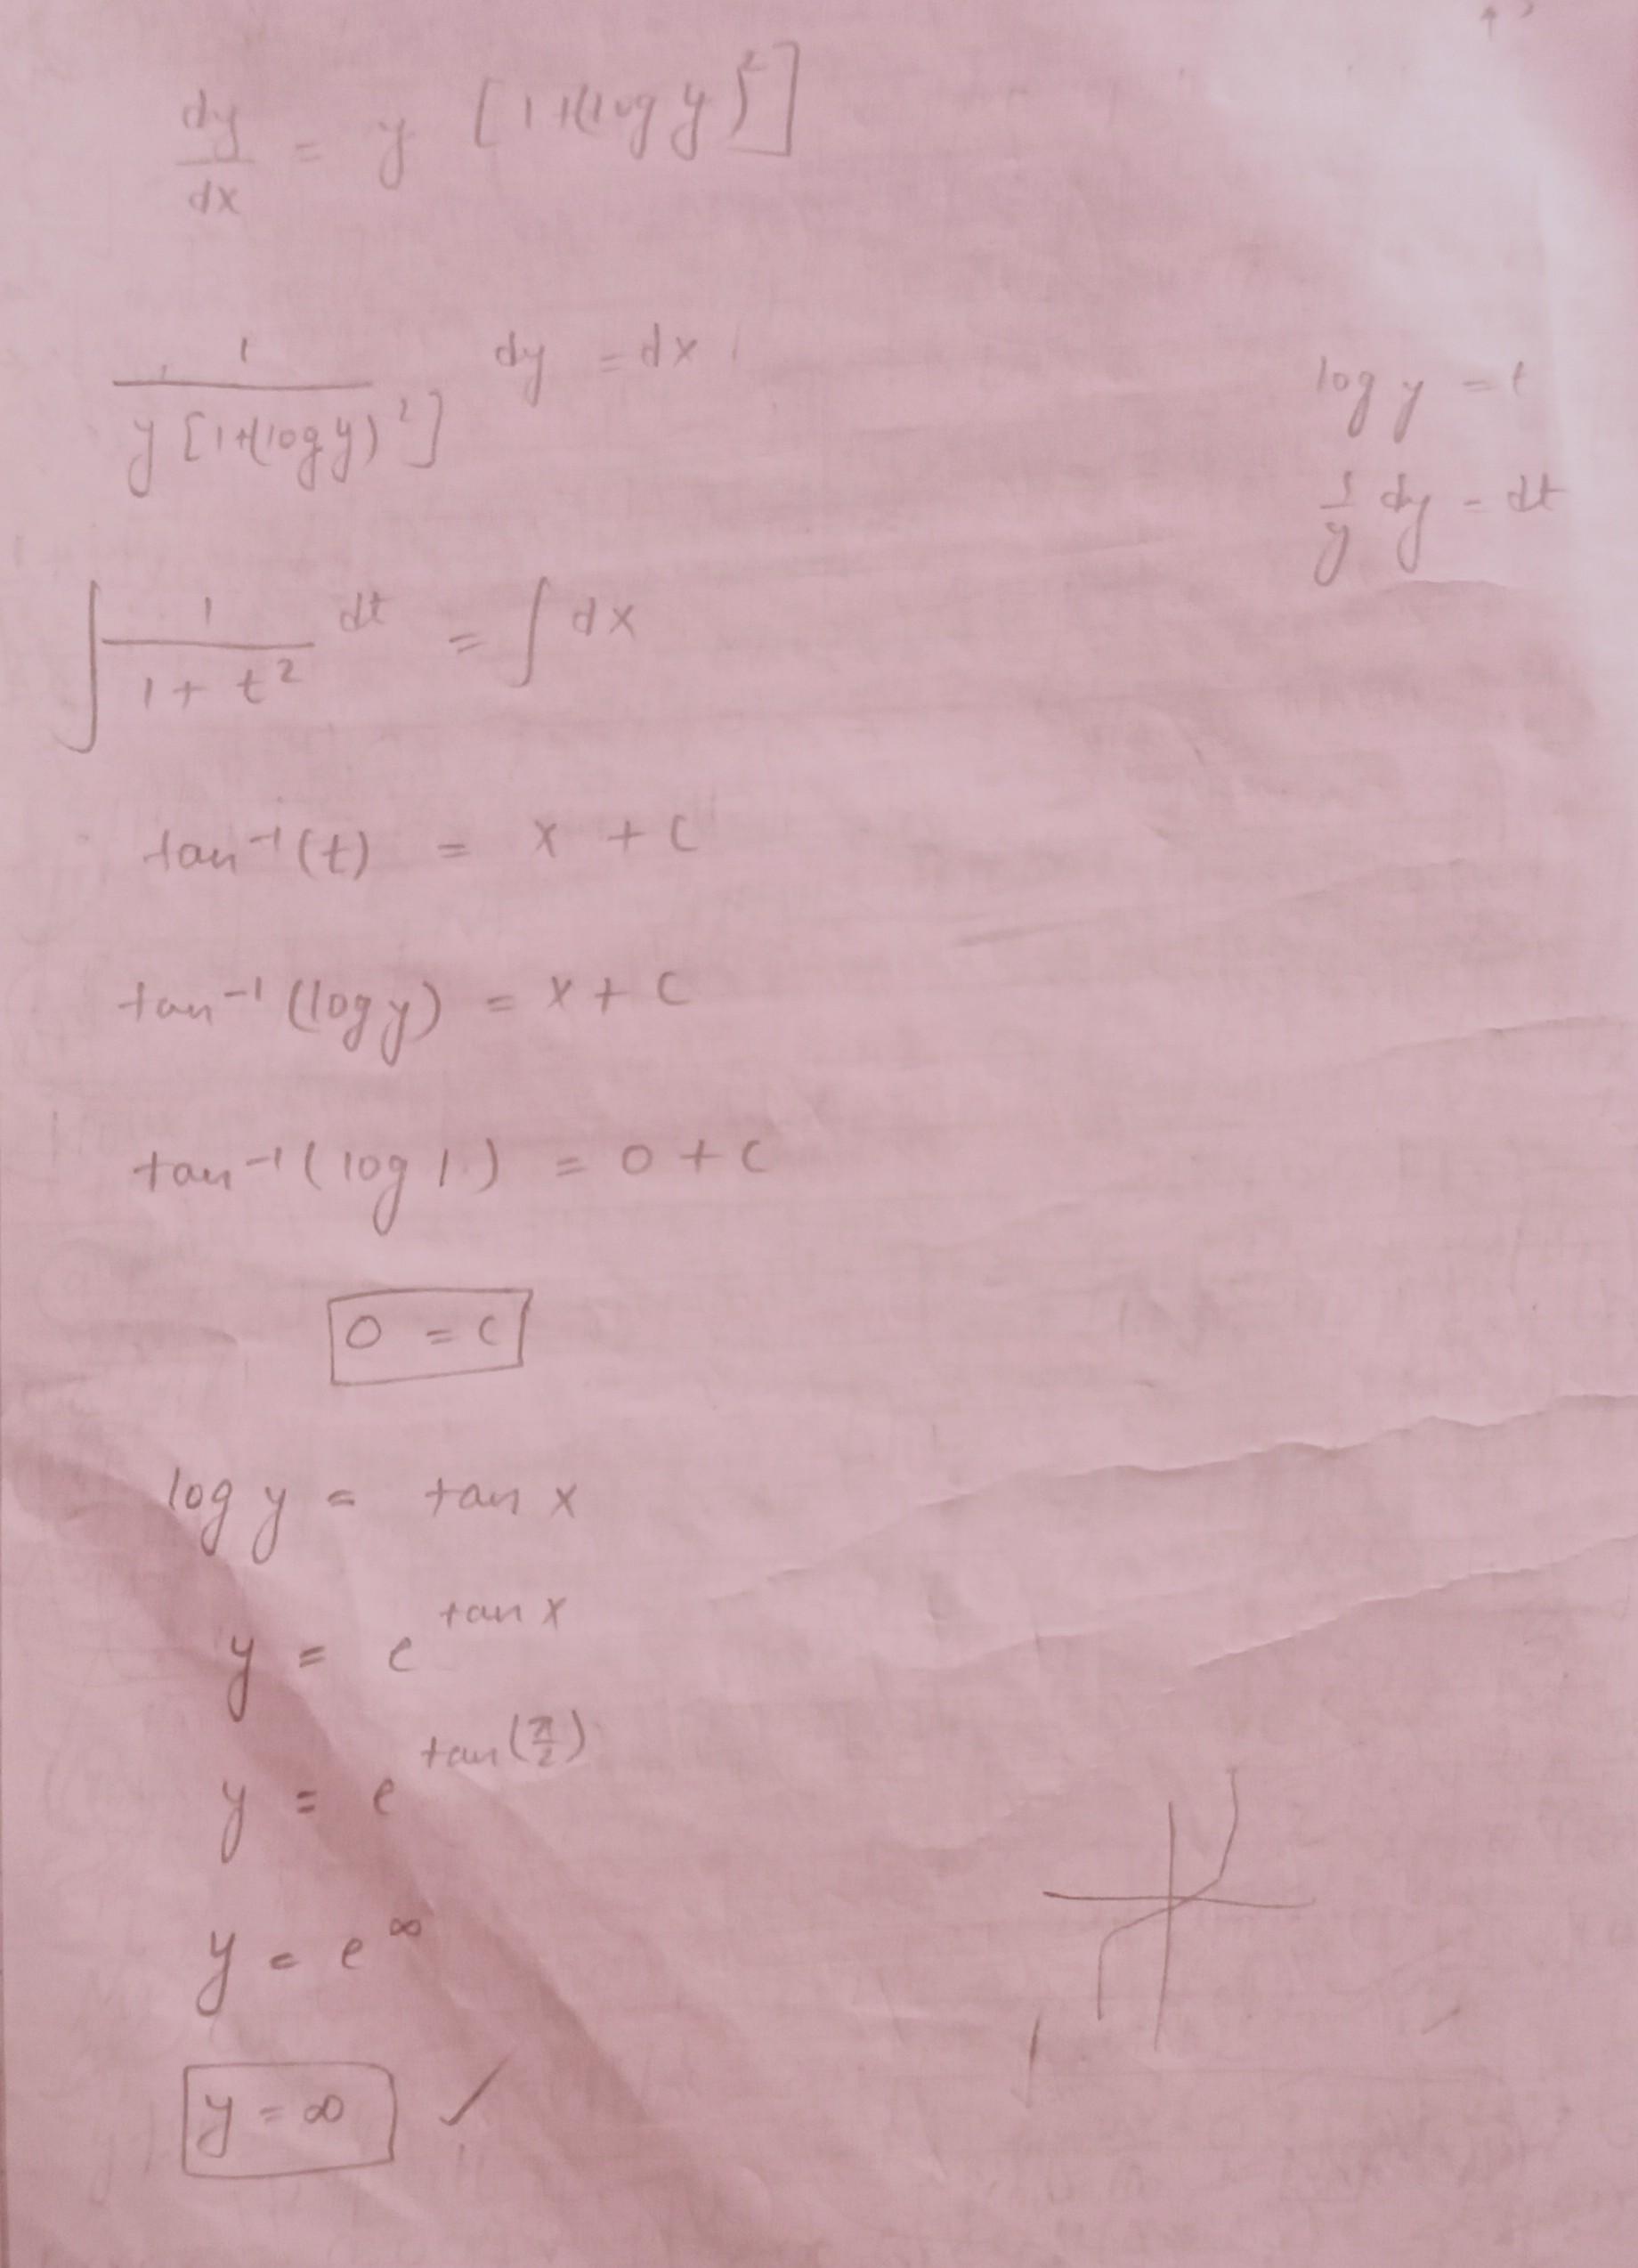 dy/dx = y [1+(log y)²]
1/(y[1+(log y)²]) dy = dx
log y = t
1/y dy = dt
∫ 1/(1+t²) dt = ∫ dx
tan⁻¹(t) = x + C
tan⁻¹(log y) = x + C
tan⁻¹(log 1) = 0 + C
0 = C
log y = tan x
y = e^(tan x)
y = e^(tan(π/2))
y = e^∞
y = ∞ ✓